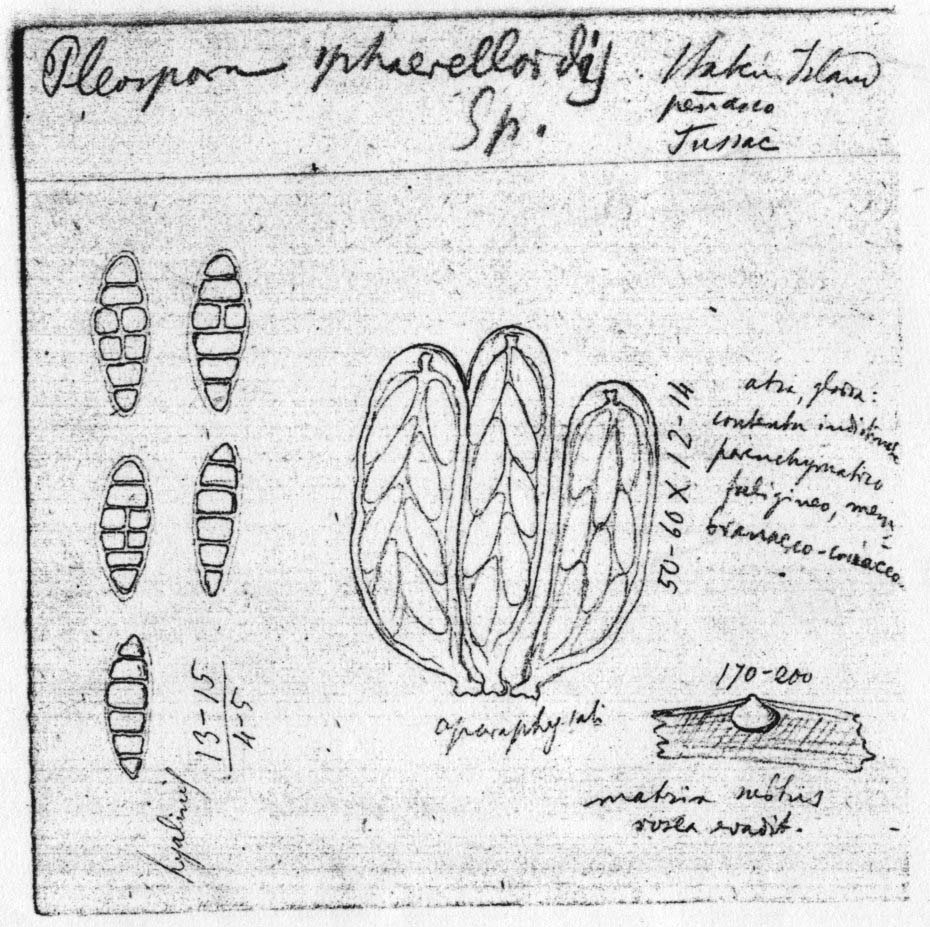 Pleospora sphaerelloidis
Sp.
Staten Island
peñasco
Tussac
atra, globosa:
contextu indistincte
parenchymatico
fuligineo, mem
branaceo-coriaceo.
50-60 X 12-14
13-15
4-5
hyalinis
aparaphysati
170-200
matrix
evadit.